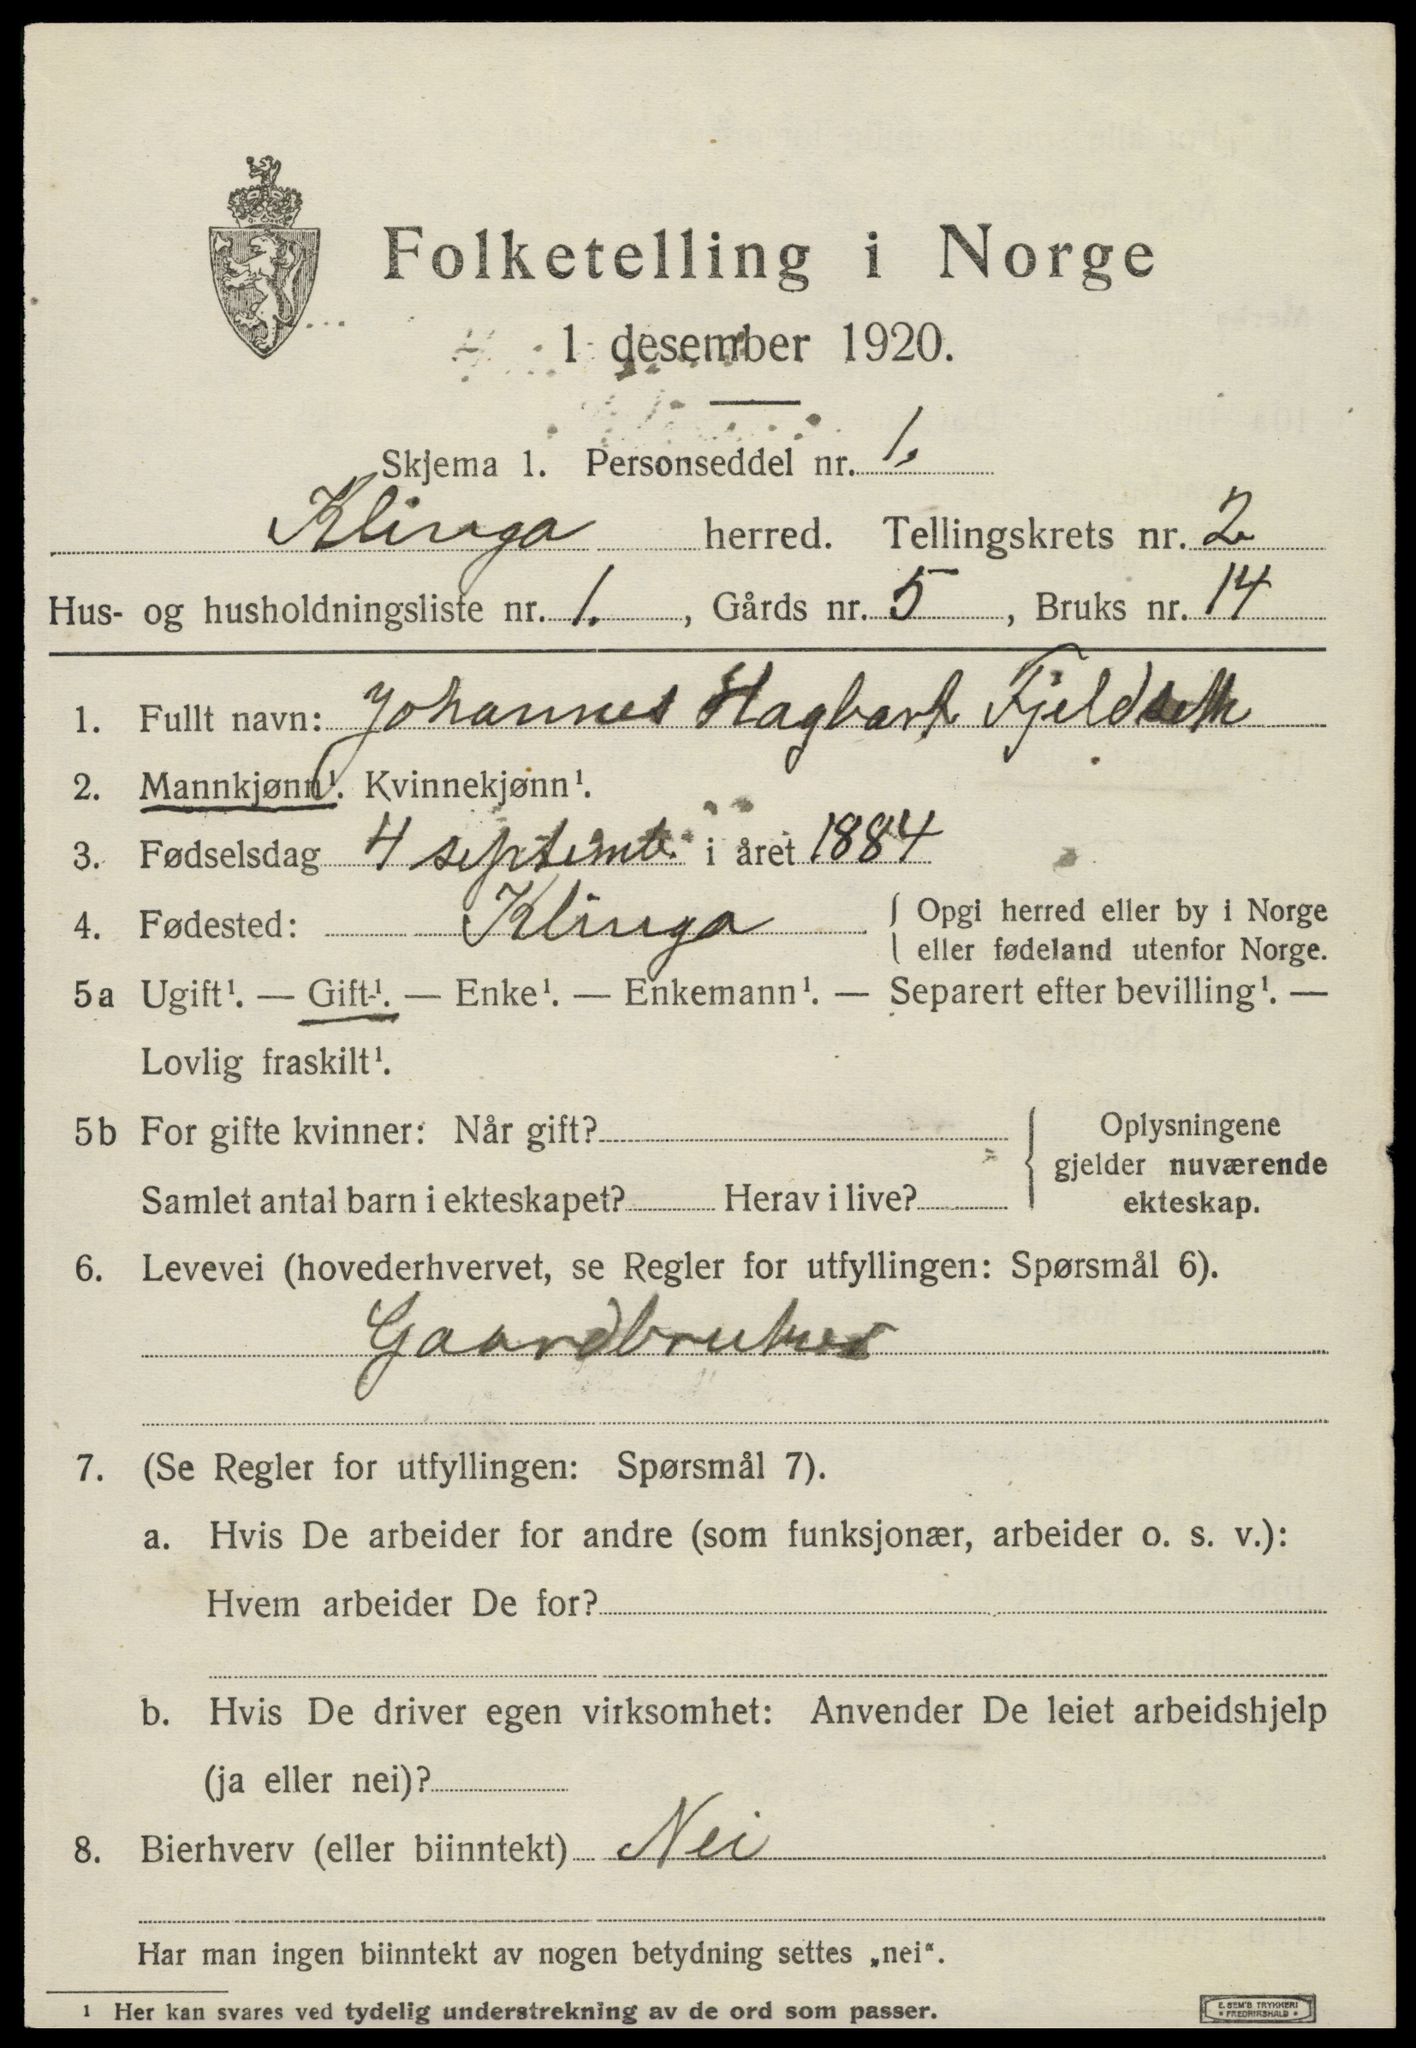 Folketelling i Norge
1 desember 1920.
Skjema 1. Personseddel nr. 1.
Klinga herred. Tellingskrets nr. 2
Hus- og husholdningsliste nr. 1. , Gårds nr. 5 , Bruks nr. 14
1. Fullt navn: Johannes Hagbart Fjeldseth
2. Mannkjønn¹. Kvinnekjønn¹.
3. Fødselsdag 4 septemb. i året 1884
4. Fødested: Klinga { Opgi herred eller by i Norge
eller fødeland utenfor Norge.
5a Ugift¹. — Gift¹. — Enke¹. — Enkemann¹. — Separert efter bevilling¹. —
Lovlig fraskilt¹.
5b For gifte kvinner: Når gift? { Oplysningene
gjelder nuværende
Samlet antal barn i ekteskapet? Herav i live? ekteskap.
6. Levevei (hovederhvervet, se Regler for utfyllingen: Spørsmål 6).
Gaardbruker
7. (Se Regler for utfyllingen: Spørsmål 7).
a. Hvis De arbeider for andre (som funksjonær, arbeider o. s. v.):
Hvem arbeider De for?
b. Hvis De driver egen virksomhet: Anvender De leiet arbeidshjelp
(ja eller nei)?
8. Bierhverv (eller biinntekt) Nei
Har man ingen biinntekt av nogen betydning settes „nei“.
¹ Her kan svares ved tydelig understrekning av de ord som passer.
E. SEM'S TRYKKERI
* FREDRIKSHALD *